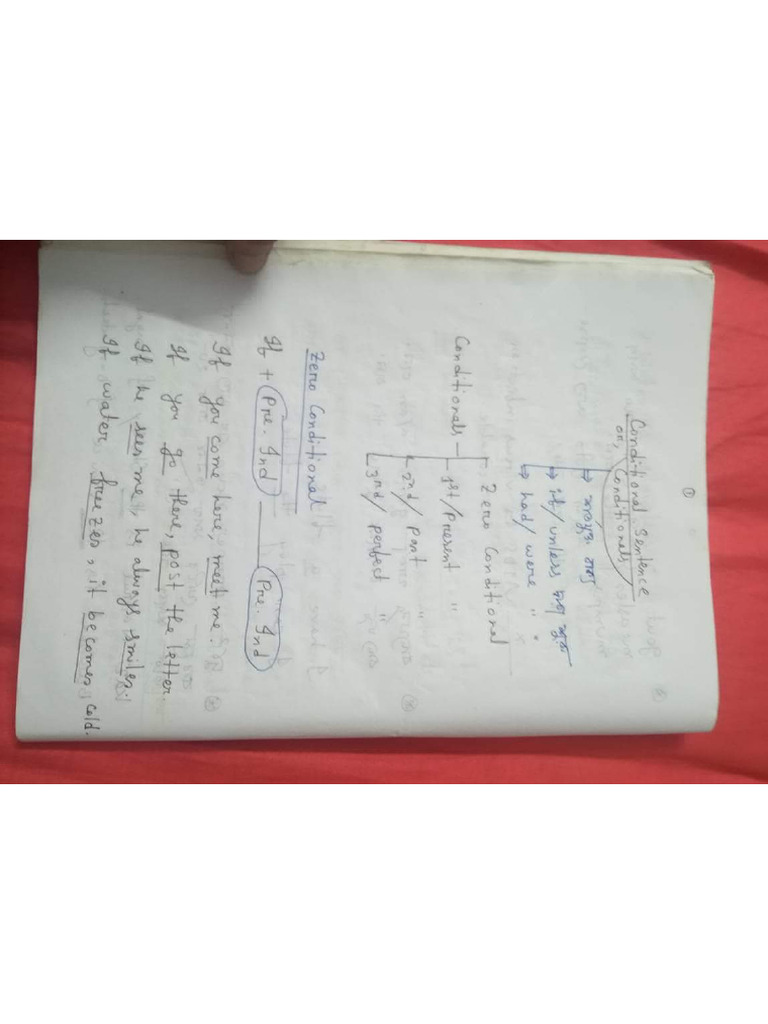 ①
Conditional Sentence
or, Conditionals
⇒ if/unless
⇒ had/were " "
Conditionals
Zero Conditional
1st/Present "
2nd/Past "
3rd/perfect "
Zero Conditional
If + Pre. Ind — Pre. Ind
If you come here, meet me.
If you go there, post the letter.
If he sees me, he always smiles.
If water freezes, it becomes cold.